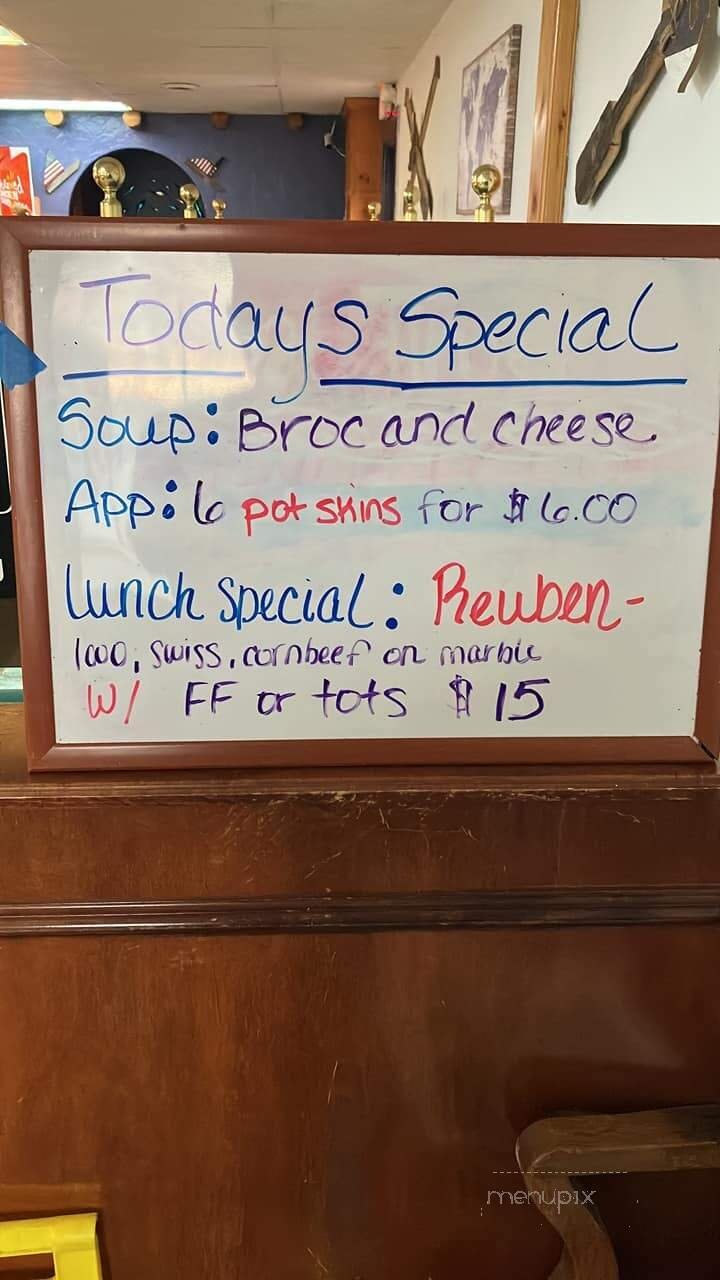 Todays Special
Soup: Broc and cheese
App: 6 pot skins for $6.00
Lunch Special: Reuben -
1000, swiss, cornbeef on marble
W/ FF or tots $15
menupix